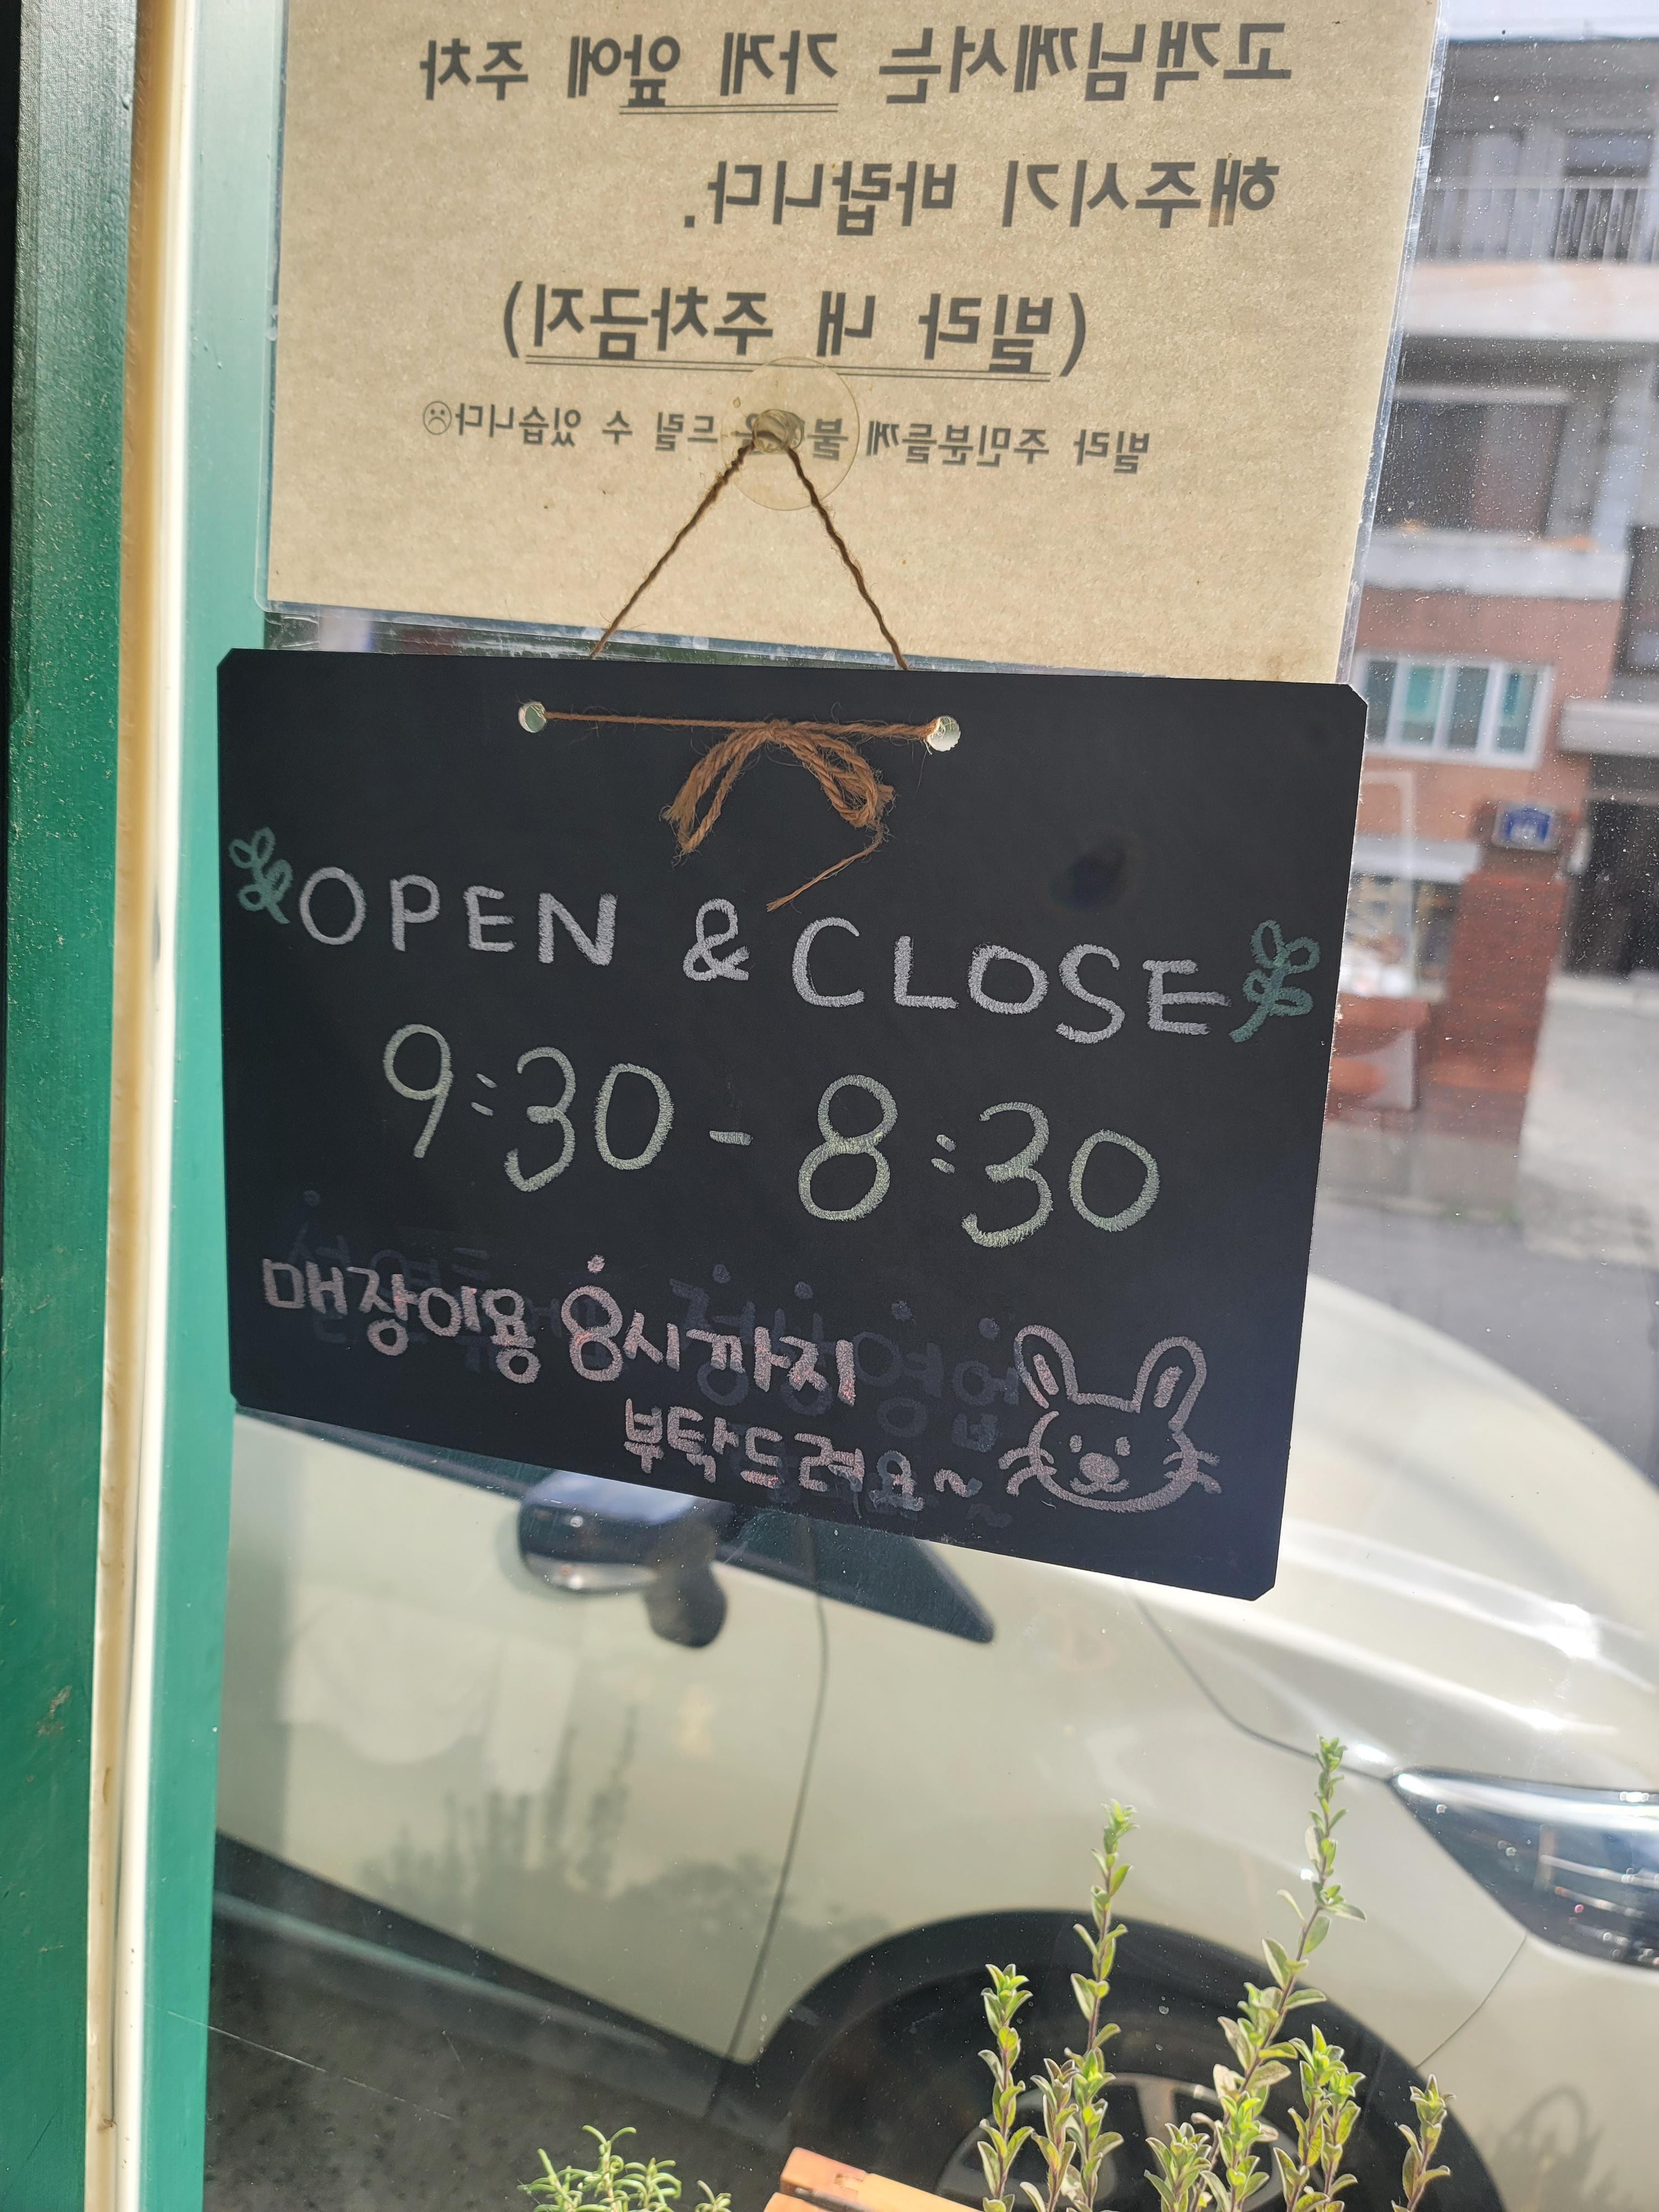 고객님께서는 가게 앞에 주차
해주시기 바랍니다.
(빌라 내 주차금지)
빌라 주민분들께 불 드릴 수 있습니다☹
OPEN & CLOSE
9:30 - 8:30
매장이용 8시까지
부탁드려요~